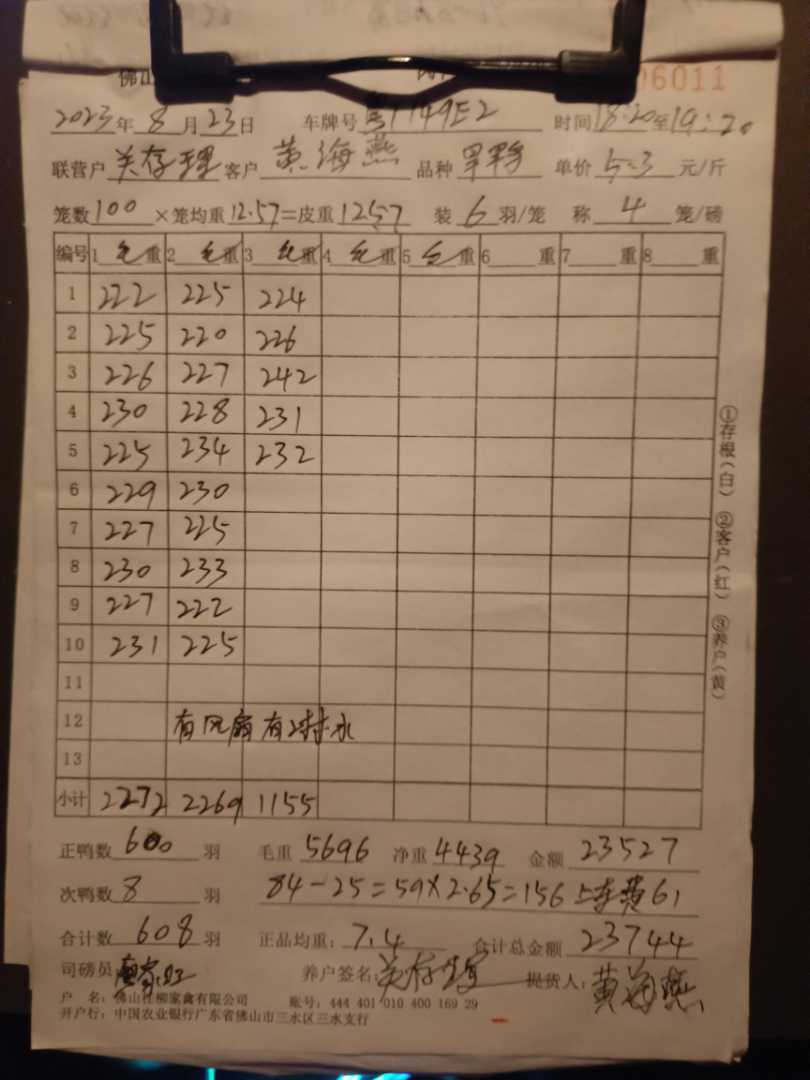 佛山
06011
2023年8月23日 车牌号 1149E2 时间18:20至19:20
联营户 关存理 客户 黄海燕 品种 旱鸭 单价 5.3 元/斤
笼数100×笼均重12.57=皮重1257 装6羽/笼 称4笼/磅
编号 1毛重 2毛重 3毛重 4毛重 5毛重 6重 7重 8重
1 222 225 224
2 225 220 226
3 226 227 242
4 230 228 231
5 225 234 232
6 229 230
7 227 225
8 230 233
9 227 222
10 231 225
11
12 有风扇有 水
13
小计 2272 2269 1155
正鸭数600羽 毛重5696 净重4439 金额23527
次鸭数8羽 84-25=59×2.65=156 上车费61
合计数608羽 正品均重:7.4 合计总金额23744
司磅员: 养户签名:关存 提货人:黄海燕
户 名:佛山 柳家禽有限公司 账号:444 401 010 400 169 29
开户行:中国农业银行广东省佛山市三水区三水支行
①存根(白) ②客户(红) ③养户(黄)